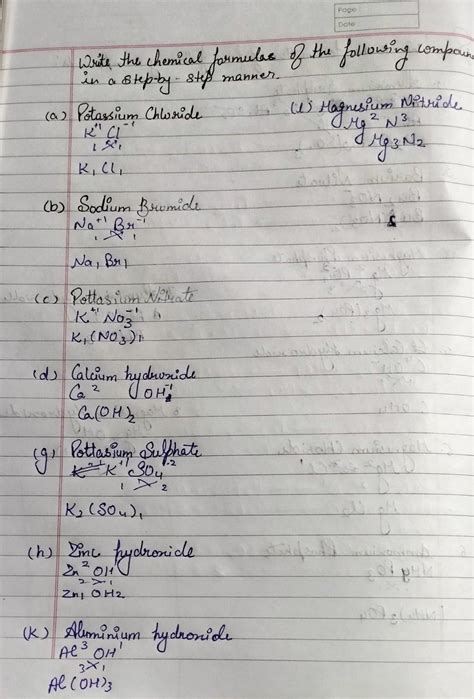 Page :
Date
Write the chemical formulas of the following compoun
in a step-by-step manner.
(a) Potassium Chloride
K+1 Cl-1
1 1
K1 Cl1
(l) Magnesium Nitride
Mg2 N3
Mg3 N2
(b) Sodium Bromide
Na+1 Br-1
1 1
Na1 Br1
(c) Pottasium Nitrate
K+1 NO3-1
K1 (NO3)1
(d) Calcium hydroxide
Ca2 OH-1
Ca(OH)2
(g) Pottasium Sulphate
K+1 SO4-2
1 2
K2 (SO4)1
(h) Zinc hydroxide
Zn2 OH1
2 1
Zn1 OH2
(K) Aluminium hydroxide
Al3 OH1
3 1
Al(OH)3